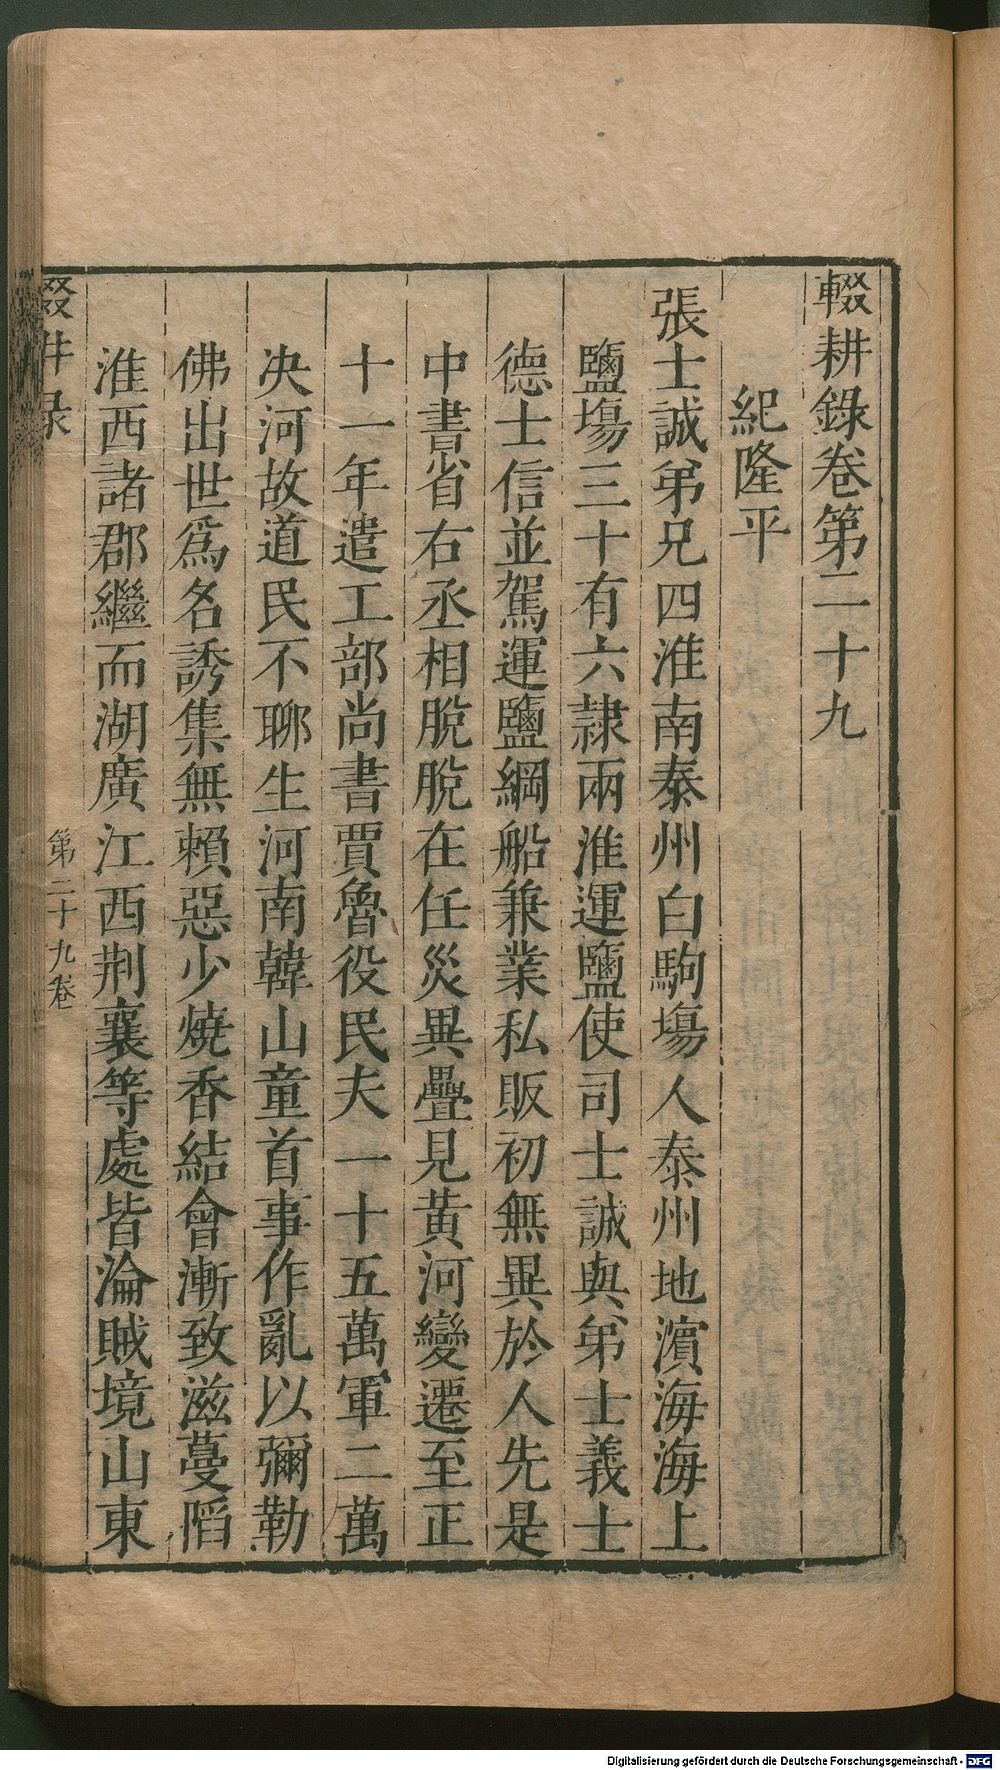 輟耕錄卷第二十九
紀隆平
張士誠弟兄四淮南泰州白駒塲人泰州地濵海海上
鹽塲三十有六隷兩淮運鹽使司士誠與弟士義士
德士信並駕運鹽綱船兼業私販初無異於人先是
中書省右丞相脫脫在任災異疊見黃河變遷至正
十一年遣工部尚書賈魯役民夫一十五萬軍二萬
决河故道民不聊生河南韓山童首事作亂以彌勒
佛出世爲名誘集無賴惡少燒香結會漸致滋蔓䧟
淮西諸郡繼而湖廣江西荆襄等處皆淪賊境山東
輟耕录
第二十九卷
Digitalisierung gefördert durch die Deutsche Forschungsgemeinschaft - DFG